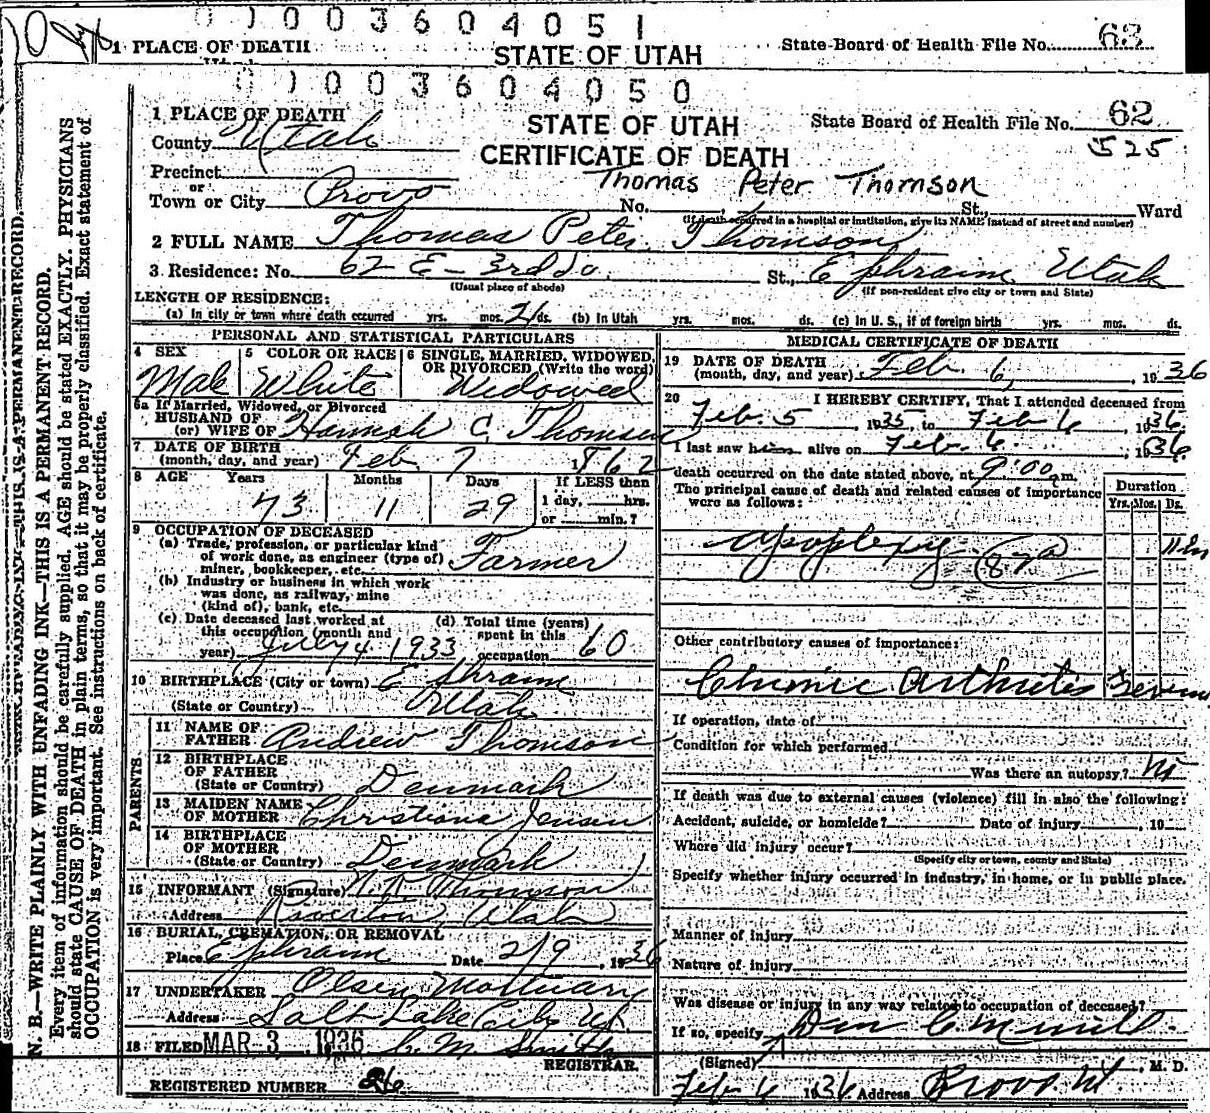 0 1 0 0 3 6 0 4 0 5 1
1 PLACE OF DEATH
STATE OF UTAH
State Board of Health File No. 63
0 1 0 0 3 6 0 4 0 5 0
1 PLACE OF DEATH
STATE OF UTAH
State Board of Health File No. 62
County Utah
525
CERTIFICATE OF DEATH
Precinct
Thomas Peter Thomson
or
Town or City Provo No. St., Ward
(If death occurred in a hospital or institution, give its NAME instead of street and number)
2 FULL NAME Thomas Peter Thomson
3 Residence: No. 62 E - 3rd So. St., Ephraim Utah
(Usual place of abode) (If non-resident give city or town and State)
LENGTH OF RESIDENCE:
(a) In city or town where death occurred yrs. mos. 21 ds. (b) In Utah yrs. mos. ds. (c) In U. S., if of foreign birth yrs. mos. ds.
PERSONAL AND STATISTICAL PARTICULARS
4 SEX Male
5 COLOR OR RACE White
6 SINGLE, MARRIED, WIDOWED,
OR DIVORCED (Write the word)
Widowed
6a If Married, Widowed, or Divorced
HUSBAND OF
(or) WIFE OF Hannah C. Thomsen
7 DATE OF BIRTH
(month, day, and year) Feb 7 1862
8 AGE Years Months Days If LESS than
73 11 29 1 day, hrs.
or min.?
9 OCCUPATION OF DECEASED
(a) Trade, profession, or particular kind
of work done, as engineer (type of)
miner, bookkeeper, etc. Farmer
(b) Industry or business in which work
was done, as railway, mine
(kind of), bank, etc.
(c) Date deceased last worked at
this occupation (month and
year) July 4 1933
(d) Total time (years)
spent in this
occupation 60
10 BIRTHPLACE (City or town) Ephraim
(State or Country) Utah
PARENTS
11 NAME OF
FATHER Andrew Thomson
12 BIRTHPLACE
OF FATHER
(State or Country) Denmark
13 MAIDEN NAME
OF MOTHER Christiana Jensen
14 BIRTHPLACE
OF MOTHER
(State or Country) Denmark
15 INFORMANT (Signature) Thomson
Address Riverton Utah
16 BURIAL, CREMATION, OR REMOVAL
Place Ephraim Date 2/9, 1936
17 UNDERTAKER Olsen Mortuary
Address Salt Lake City Ut
18 FILED MAR-3 1936 C. M. Smith
REGISTRAR.
REGISTERED NUMBER 26
MEDICAL CERTIFICATE OF DEATH
19 DATE OF DEATH
(month, day, and year) Feb. 6, 1936
20 I HEREBY CERTIFY, That I attended deceased from
Feb. 5, 1935, to Feb 6, 1936.
I last saw him alive on Feb. 6, 1936
death occurred on the date stated above, at 9:00 a m.
The principal cause of death and related causes of importance
were as follows:
Duration
Yrs. Mos. Ds.
apoplexy
Other contributory causes of importance:
Chronic Arthritis
If operation, date of
Condition for which performed
Was there an autopsy?
If death was due to external causes (violence) fill in also the following:
Accident, suicide, or homicide? Date of injury, 19
Where did injury occur?
(Specify city or town, county and State)
Specify whether injury occurred in industry, in home, or in public place.
Manner of injury
Nature of injury
Was disease or injury in any way related to occupation of deceased?
If so, specify
(Signed) Merrill, M. D.
Feb 6 1936 Address Provo Ut
N. B.—WRITE PLAINLY WITH UNFADING INK—THIS IS A PERMANENT RECORD.
Every item of information should be carefully supplied. AGE should be stated EXACTLY. PHYSICIANS
should state CAUSE OF DEATH in plain terms, so that it may be properly classified. Exact statement of
OCCUPATION is very important. See instructions on back of certificate.